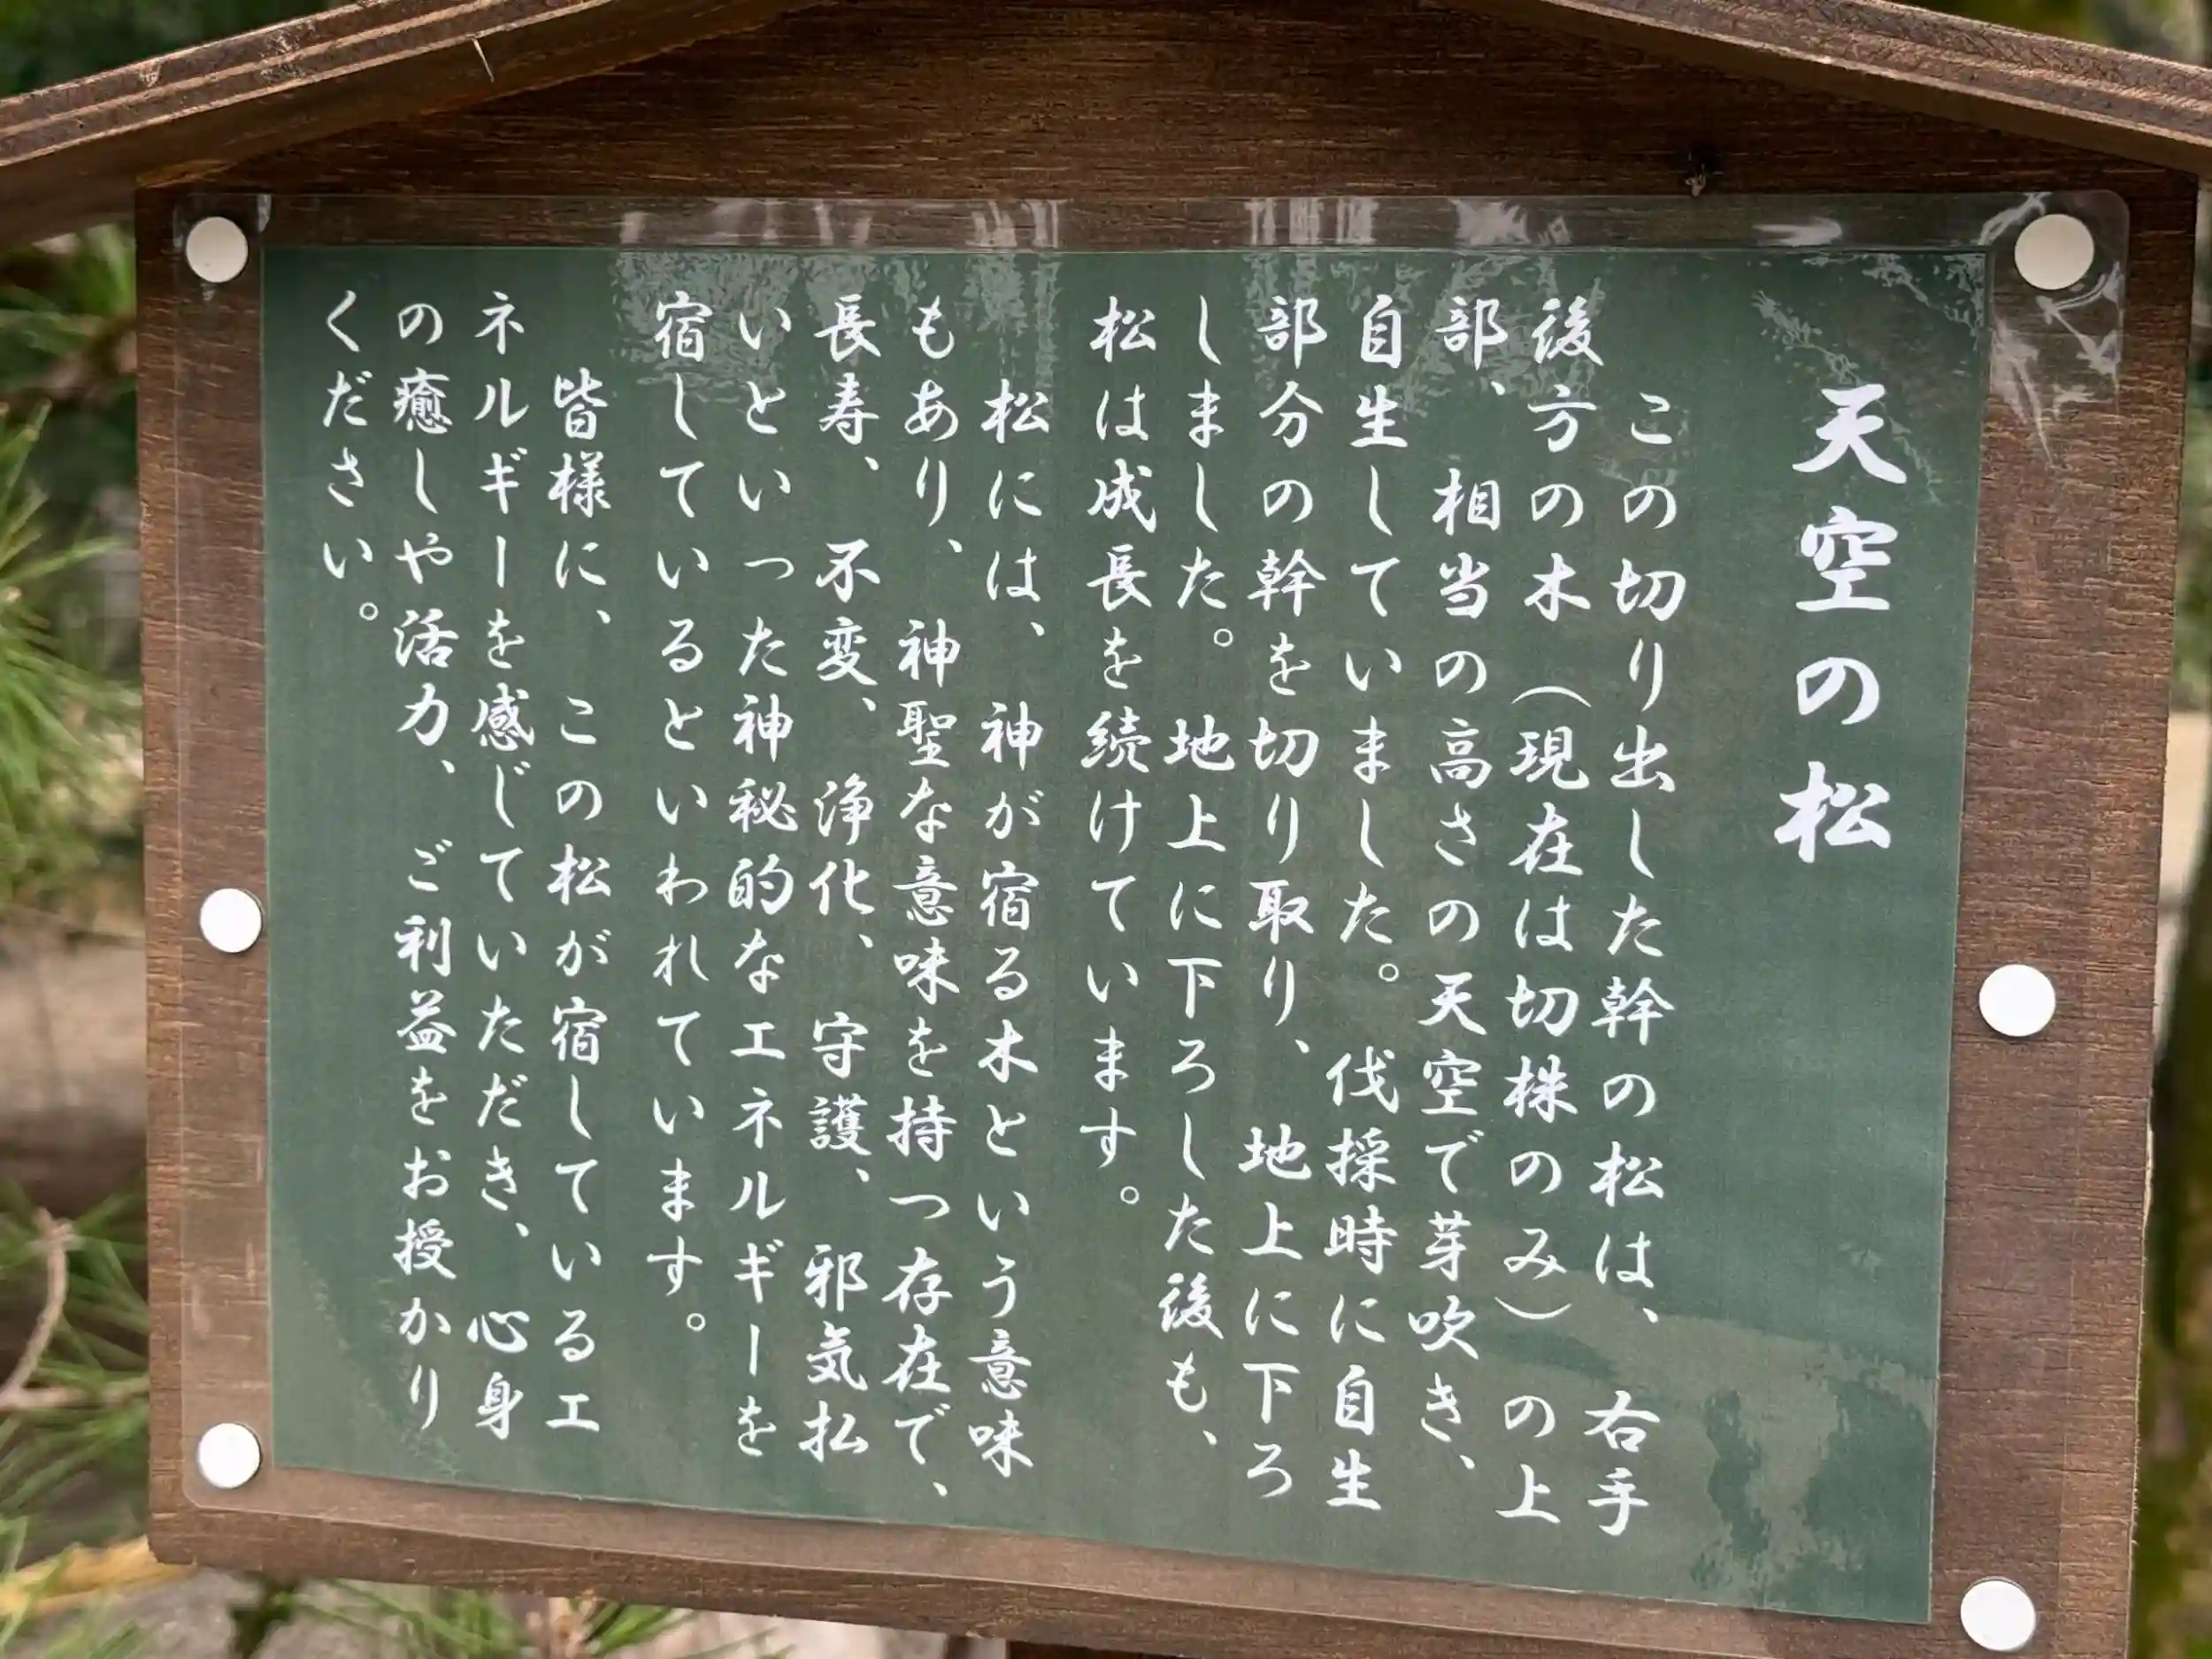 天空の松
この切り出した幹の松は、右手
後方の木（現在は切株のみ）の上
部、相当の高さの天空で芽吹き、
自生していました。伐採時に自生
部分の幹を切り取り、地上に下ろ
しました。地上に下ろした後も、
松は成長を続けています。
松には、神が宿る木という意味
もあり、神聖な意味を持つ存在で、
長寿、不変、浄化、守護、邪気払
いといった神秘的なエネルギーを
宿しているといわれています。
皆様に、この松が宿しているエ
ネルギーを感じていただき、心身
の癒しや活力、ご利益をお授かり
ください。